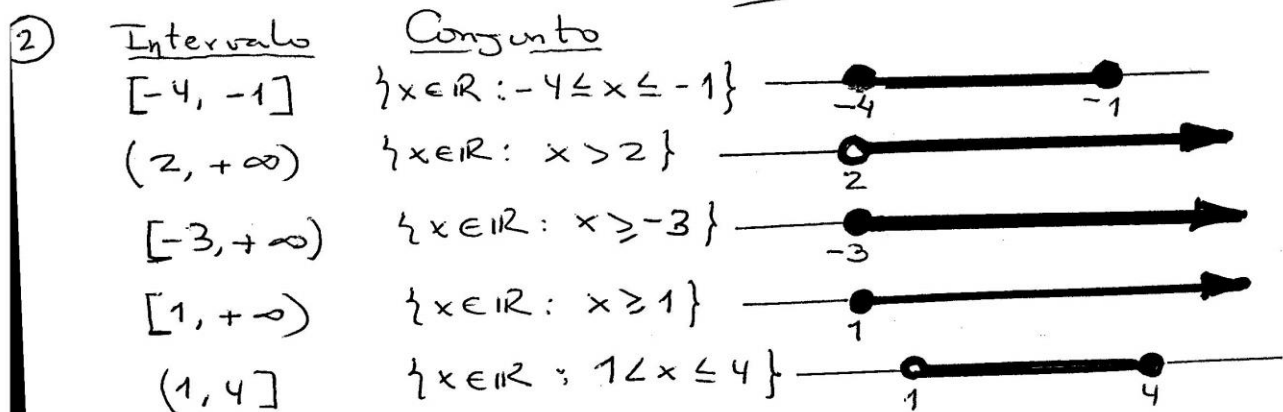 2) Intervalo Conjunto
[-4, -1] {x∈ℝ : -4 ≤ x ≤ -1} -4 -1
(2, +∞) {x∈ℝ : x > 2} 2
[-3, +∞) {x∈ℝ : x ≥ -3} -3
[1, +∞) {x∈ℝ : x ≥ 1} 1
(1, 4] {x∈ℝ : 1 < x ≤ 4} 1 4